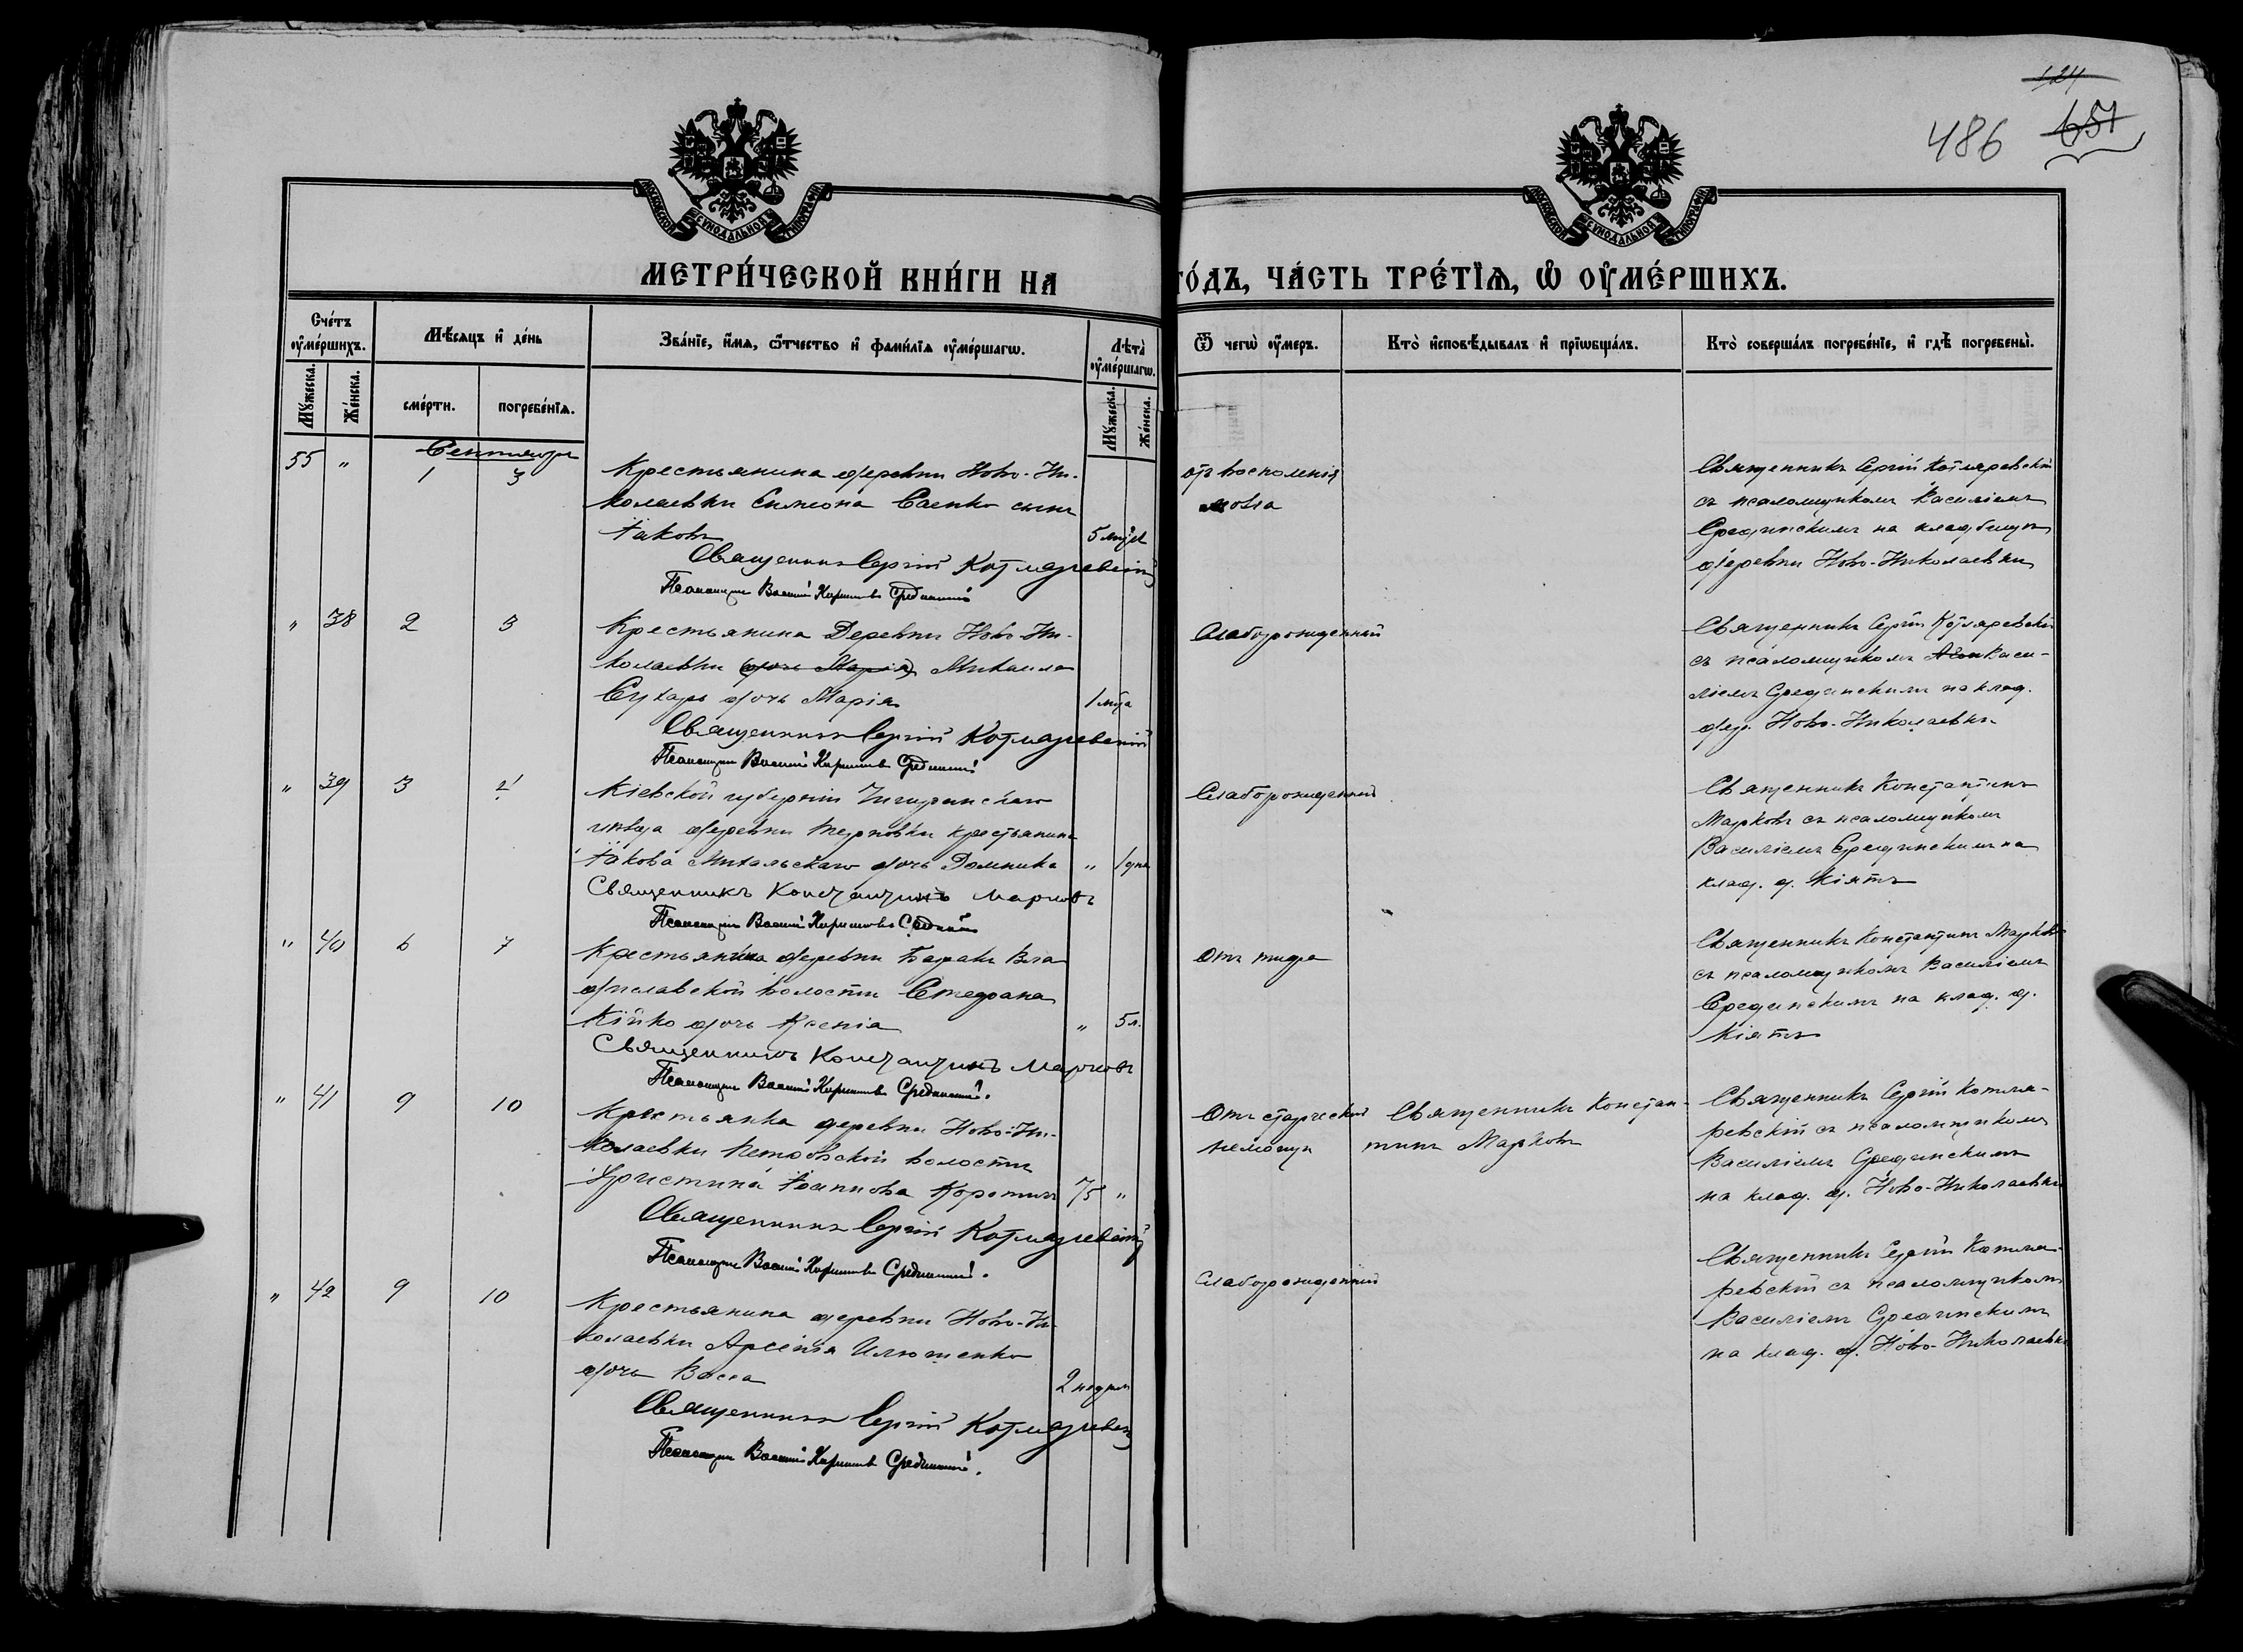 124
651
486
МОСКОВСКОЙ СѴНОДАЛЬНОЙ ТИПОГРАФІИ
МОСКОВСКОЙ СѴНОДАЛЬНОЙ ТИПОГРАФІИ
МЕТРИ́ЧЕСКОЙ КНИ́ГИ НА
ГО́ДЪ, ЧА́СТЬ ТРЕ́ТЇѦ, Ѡ҆ ОУ҆МЕ́РШИХЪ.
Сче́тъ
оу҆ме́ршихъ.
Мѣ́сяцъ и҆ де́нь
Зва́нїе, и҆́мѧ, ѻ҆́тчество и҆ фами́лїѧ оу҆ме́ршагѡ.
Лѣта̀
оу҆ме́ршагѡ.
Ѿ чегѡ̀ оу҆́меръ.
Кто̀ и҆сповѣ́дывалъ и҆ прїѡбща́лъ.
Кто̀ соверша́лъ погребе́нїе, и҆ гдѣ̀ погребены̀.
Мꙋ́жеска.
Же́нска.
сме́рти.
погребе́нїѧ.
Мꙋ́жеска.
Же́нска.
Сентябрь
55 " 1 3
Крестьянина деревни Ново-Ни-
колаевки Симеона Саенко сынъ
Іаковъ
5 мѣс
Священникъ Сергій Котляревскій
Псаломщикъ Василій Срединскій
отъ воспаленія
Священникъ Сергій Котляревскій
съ псаломщикомъ Василіемъ
Срединскимъ на кладбищѣ
деревни Ново-Николаевки
" 38 2 3
Крестьянина Деревни Ново-Ни-
колаевки дочь Марія Михаила
Сухарь дочь Марія
1 мѣс
Священникъ Сергій Котляревскій
Псаломщикъ Василій Срединскій
Слаборожденный
Священникъ Сергій Котляревскій
съ псаломщикомъ Васи-
ліемъ Срединскимъ на клад.
дер. Ново-Николаевки
" 39 3 4
Кіевской губерніи Чигиринскаго
уѣзда деревни Терновки крестьянина
Іакова Михальскаго дочь Домника
" 1 дня
Священникъ Константинъ Марковъ
Псаломщикъ Василій Срединскій
Слаборожденный
Священникъ Константинъ
Марковъ съ псаломщикомъ
Василіемъ Срединскимъ на
клад. д. Кіятъ
" 40 6 7
Крестьянина деревни Баракъ Вла-
диславской волости Стефана
Кійко дочь Ксенія
" 5 л.
Священникъ Константинъ Марковъ
Псаломщикъ Василій Срединскій.
Отъ тифа
Священникъ Константинъ Марковъ
съ псаломщикомъ Василіемъ
Срединскимъ на клад. д.
Кіятъ
" 41 9 10
Крестьянка деревни Ново-Ни-
колаевки Петровской волости
Христина Іоаннова
75 "
Священникъ Сергій Котляревскій
Псаломщикъ Василій Срединскій.
Отъ старческой
немощи
Священникъ Констан-
тинъ Марковъ
Священникъ Сергій Котля-
ревскій съ псаломщикомъ
Василіемъ Срединскимъ
на клад. д. Ново-Николаевки
" 42 9 10
Крестьянина деревни Ново-Ни-
колаевки Арсенія Илющенко
дочь Васса
2 недѣли
Священникъ Сергій Котляревскій
Псаломщикъ Василій Срединскій.
Слаборожденный
Священникъ Сергій Котля-
ревскій съ псаломщикомъ
Василіемъ Срединскимъ
на клад. д. Ново-Николаевки